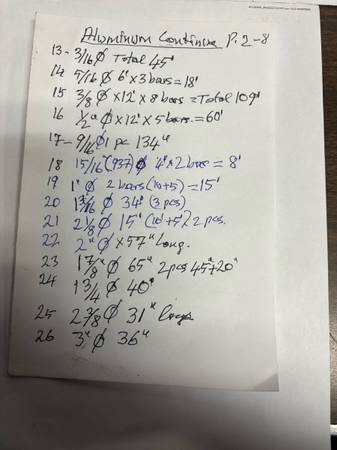 Aluminum Continue P. 2-8
13- 3/16 Ø Total 45'
14 5/16 Ø 6' x 3 bars = 18'
15 3/8 Ø x 12' x 8 bars = Total 109'
16 1/2" Ø x 12' x 5 bars = 60'
17- 9/16 Ø 1 pc 134"
18 15/16" (937) Ø 4' x 2 bars = 8'
19 1" Ø 2 bars (10+5) = 15'
20 1 3/16 Ø 34" (3 pcs)
21 2 1/8 Ø 15' (10'+5') 2 pcs.
22 2" Ø x 57" Long.
23 1 7/8" Ø 65" 2 pcs 45"+20"
24 1 3/4 Ø 40"
25 2 3/8 Ø 31" long
26 3" Ø 36"